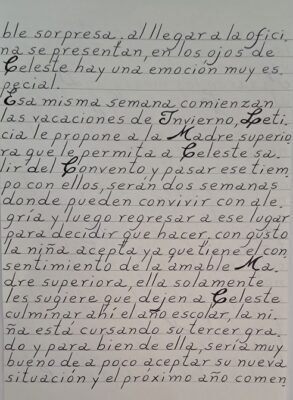 ble sorpresa, al llegar a la ofici-
na se presentan, en los ojos de
Celeste hay una emoción muy es
pecial.
Esa misma semana comienzan
las vacaciones de Invierno, Leti-
cia le propone a la Madre superio
ra que le permita a Celeste sa-
lir del Convento y pasar ese tiem
po con ellos, serán dos semanas
donde pueden convivir con ale
gría y luego regresar a ese lugar
para decidir que hacer, con gusto
la niña acepta ya que tiene el con
sentimiento de la amable Ma-
dre superiora, ella solamente
les sugiere que dejen a Celeste
culminar ahí el año escolar, la ni-
ña está cursando su tercer gra-
do y para bien de ella, sería muy
bueno de a poco aceptar su nueva
situación y el próximo año comen